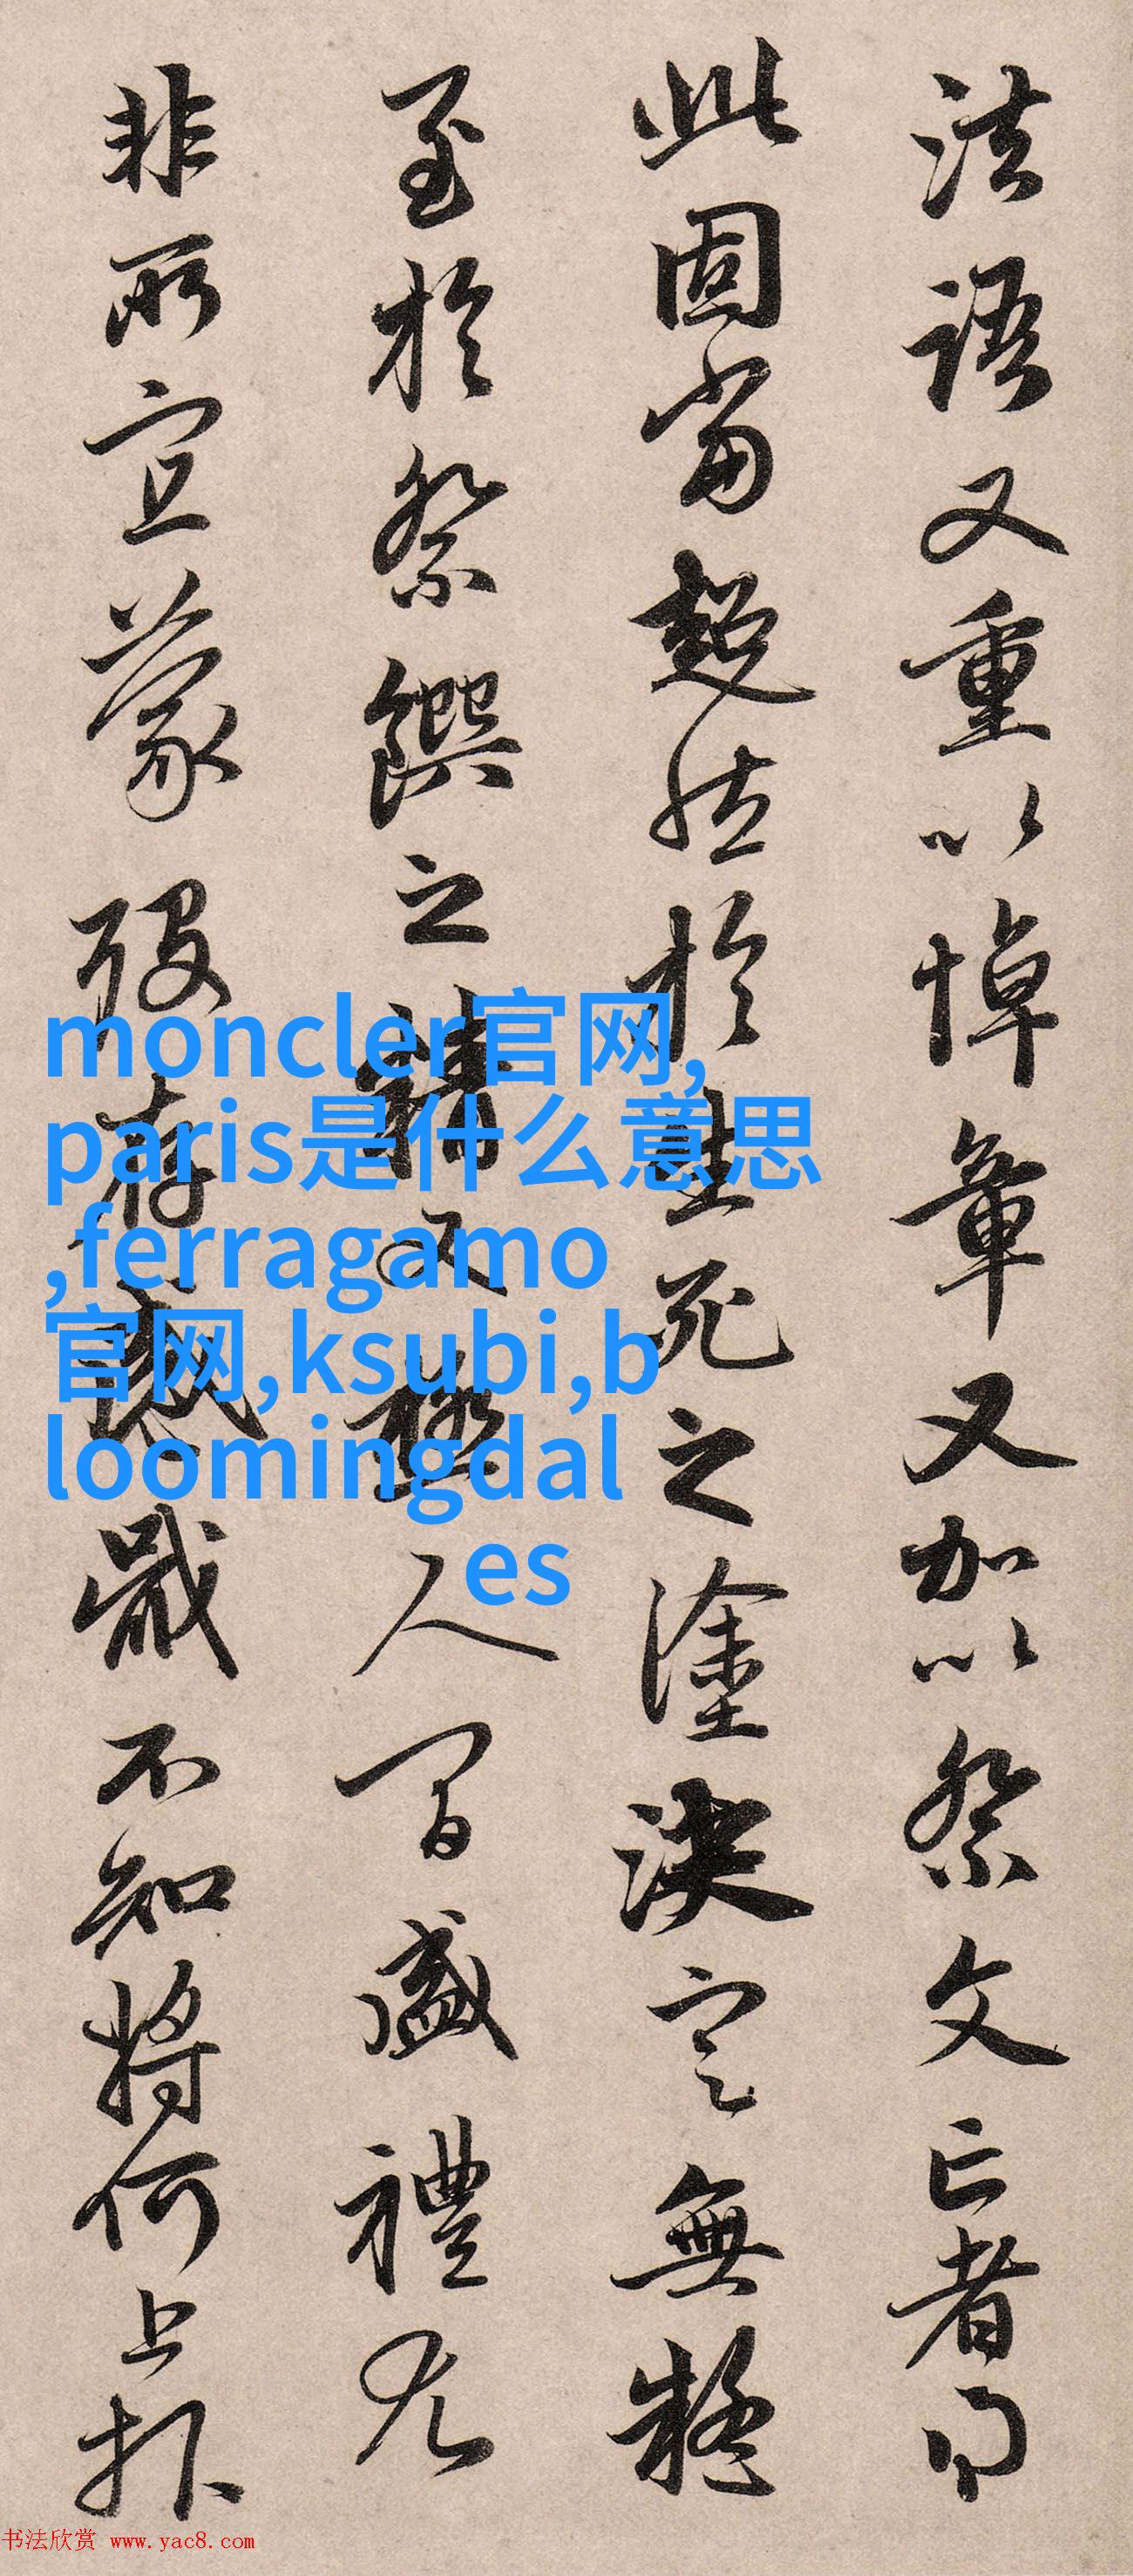 法語又重以悼章又加以祭文亡者得
此固當超然於生死之塗決定無疑
至於祭饌之精又極人間盛禮尤
非所宜蒙殁存感戢不知將何上報
moncler官网,
paris是什么意思
,ferragamo
官网,ksubi,b
loomingdal
es
书法欣赏 www.yac8.com